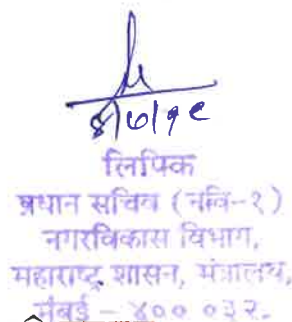 ४/७/१९
लिपिक
प्रधान सचिव (नवि-१)
नगरविकास विभाग,
महाराष्ट्र शासन, मंत्रालय,
मुंबई - ४०० ०३२.